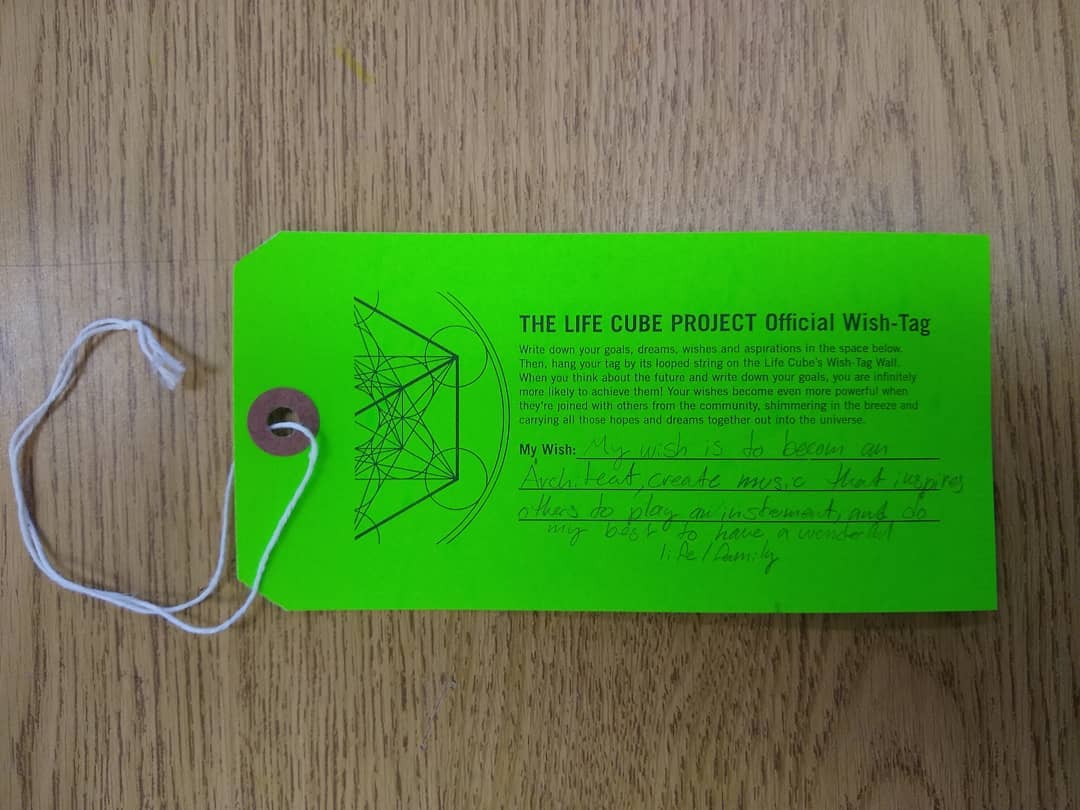 THE LIFE CUBE PROJECT Official Wish-Tag
Write down your goals, dreams, wishes and aspirations in the space below.
Then, hang your tag by its looped string on the Life Cube's Wish-Tag Wall.
When you think about the future and write down your goals, you are infinitely
more likely to achieve them! Your wishes become even more powerful when
they're joined with others from the community, shimmering in the breeze and
carrying all those hopes and dreams together out into the universe.
My Wish: My wish is to becom an
Architeat, create music that inspires
others to play an insterment, and do
my best to have a wonderful
life/family